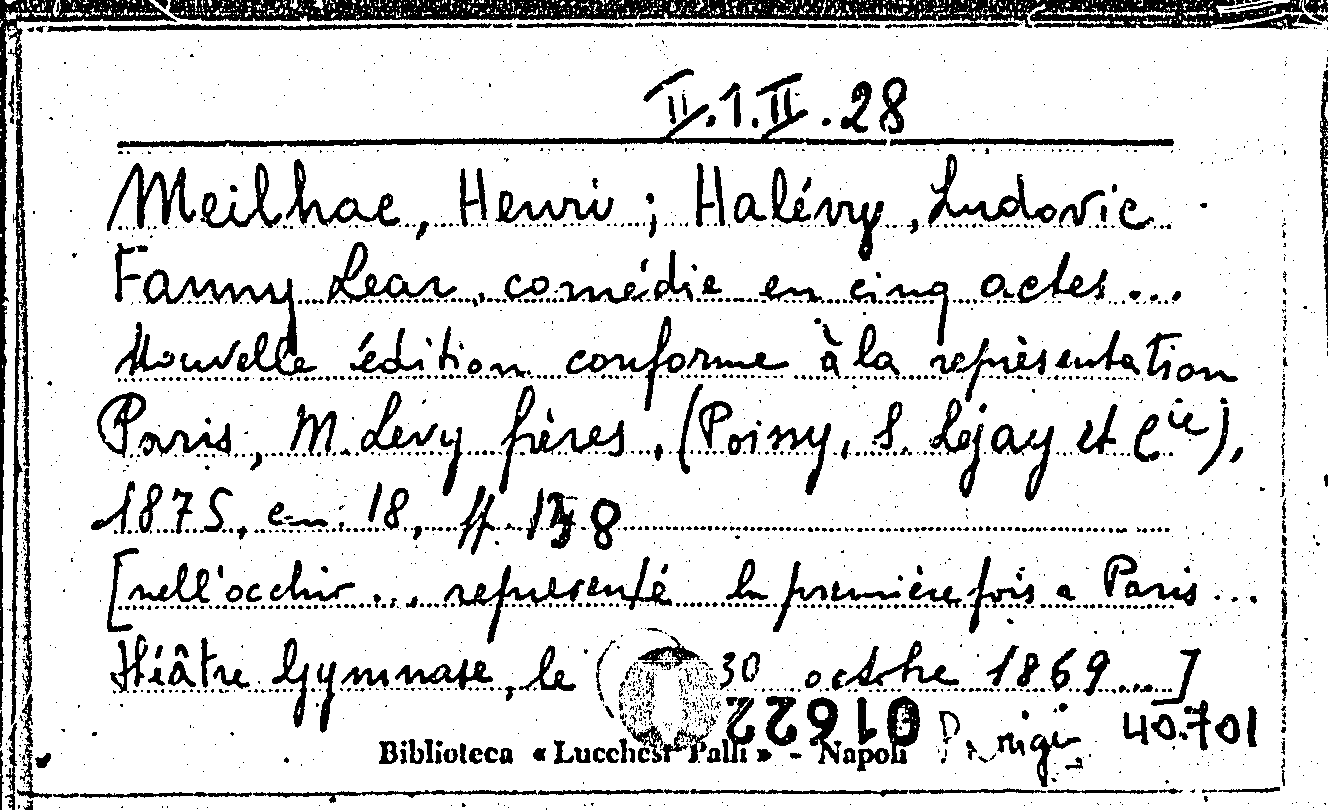 II.1.II.28
Meilhac, Henri ; Halévy, Ludovic
Fanny Lear, comédie en cinq actes...
Nouvelle édition conforme à la représentation
Paris, M. Lévy frères, (Poissy, S. Lejay et Cie),
1875, en. 18, pp. 8
[nell'occhio... representé la première fois a Paris...
théâtre Gymnase, le 30 octobre 1869...]
01622
40.701
Biblioteca « Lucchesi Palli » - Napoli